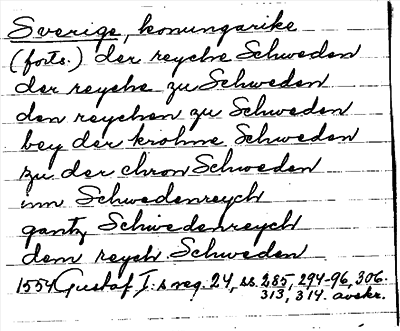 Sverige, konungarike
(forts.) der reyche Schweden
der reyche zu Schweden
den reychen zu Schweden
bey der krohne Schweden
zu der chron Schweden
inn Schwedenreych
gantz Schwedenreych
dem reych Schweden
1554 Gustaf I:s reg. 24, ss. 285, 294-96, 306.
313, 314. avskr.